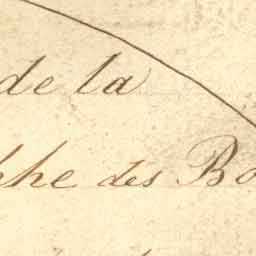 de la
phe des Bo